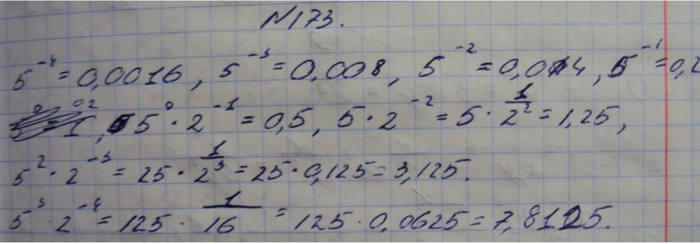 N173.
5⁻⁴ = 0,0016, 5⁻³ = 0,008, 5⁻² = 0,04, 5⁻¹ = 0,2
1, 5⁰ · 2⁻¹ = 0,5, 5 · 2⁻² = 5 · 1/2² = 1,25,
5² · 2⁻³ = 25 · 1/2³ = 25 · 0,125 = 3,125.
5³ · 2⁻⁴ = 125 · 1/16 = 125 · 0,0625 = 7,8125.